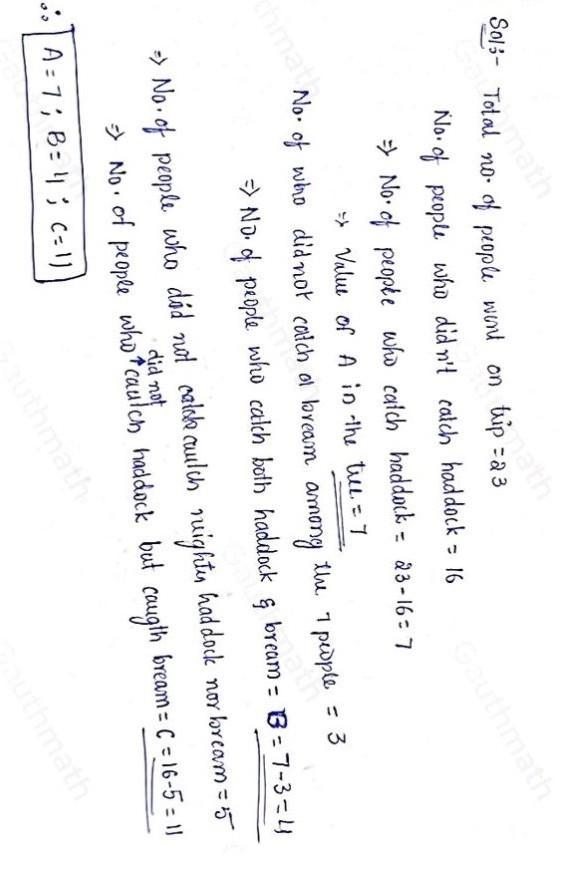 Sol:- Total no. of people went on trip = 23
No. of people who didn't catch haddock = 16
=> No. of people who catch haddock = 23-16 = 7
=> Value of A in the tree = 7
No. of who did not catch a bream among the 7 people = 3
=> No. of people who catch both haddock & bream = B = 7-3 = 4
=> No. of people who did not catch caulch neighty haddock nor bream = 5
=> No. of people who did not caulch haddock but caugth bream = C = 16-5 = 11
∴ A = 7 ; B = 4 ; C = 11
Gauthmath